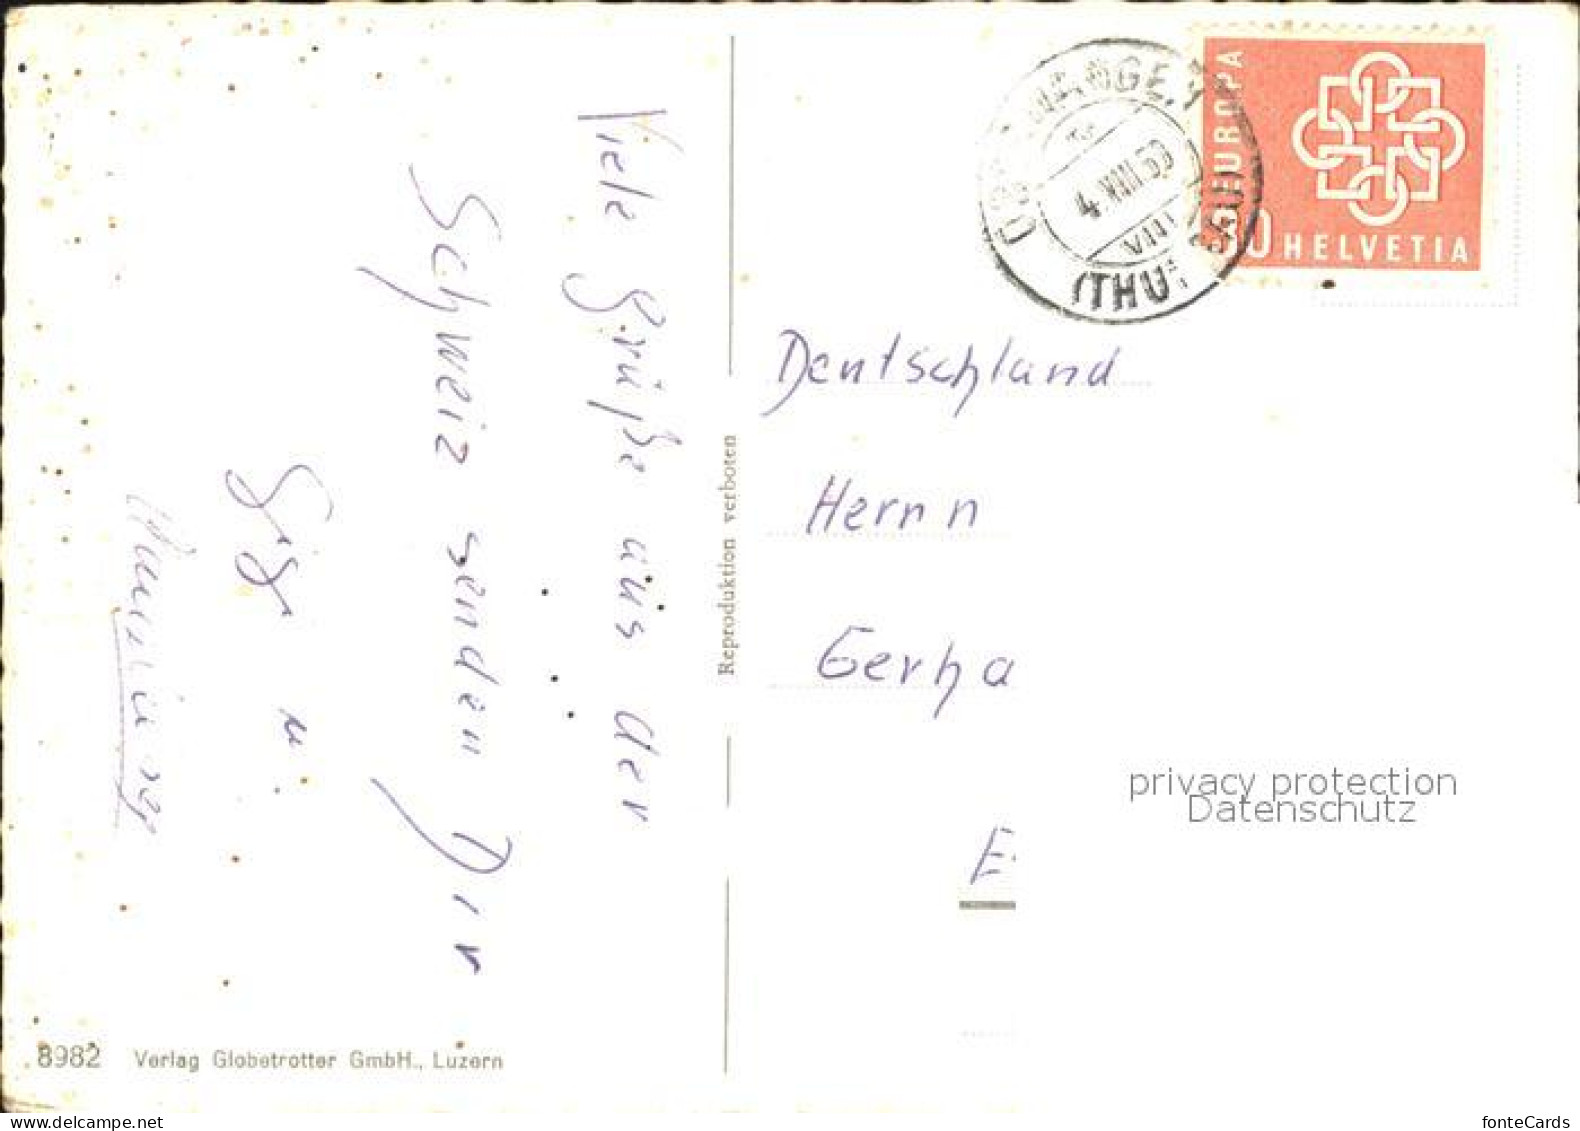 Viele Grüße aus der
Schweiz senden Dir
u.
8982 Verlag Globetrotter GmbH., Luzern
Reproduktion verboten
4.VIII.59
VIII
(THURGAU)
EUROPA
HELVETIA
Deutschland
Herrn
Gerha
E
privacy protection
Datenschutz
www.delcampe.net
fonteCards